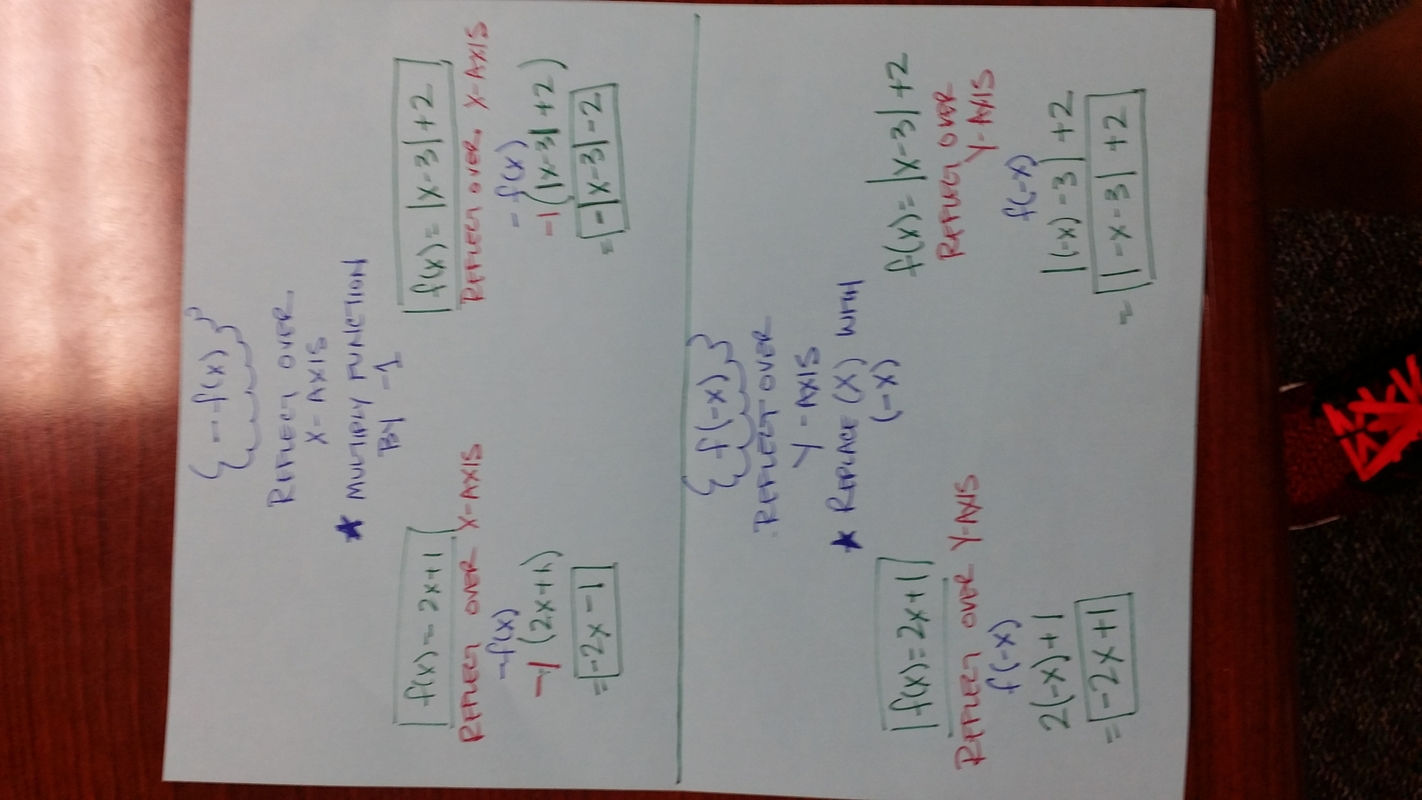 {-f(x)}
REFLECT OVER
X-AXIS
★ MULTIPLY FUNCTION
BY -1
f(x) = 2x+1
REFLECT OVER X-AXIS
-f(x)
-1 (2x+1)
= -2x-1
f(x) = |x-3|+2
REFLECT OVER X-AXIS
-f(x)
-1(|x-3|+2)
= -|x-3|-2
{f(-x)}
REFLECT OVER
Y-AXIS
★ REPLACE (X) WITH
(-x)
f(x)=2x+1
REFLECT OVER Y-AXIS
f(-x)
2(-x)+1
= -2x+1
f(x) = |x-3|+2
REFLECT OVER
Y-AXIS
f(-x)
|(-x)-3|+2
= |-x-3|+2